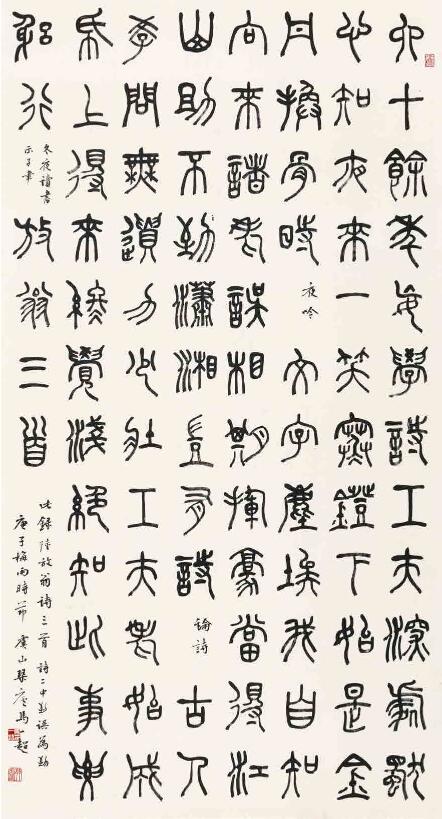 六十餘年妄學詩工夫深處獨
心知夜來一笑寒燈下始是金
丹換骨時 夜吟 文字塵埃我自知
向來諸老誤相期揮毫當得江
山助不勁瀟湘豈有詩 論詩 古人
學問無遺力少壯工夫老始成
紙上得來終覺淺絕知此事要
躬行 冬夜讀書示子聿 放翁三首
此錄陸放翁詩三首 詩二中到誤為勁
庚子梅雨時節 虞山琴廬馬超